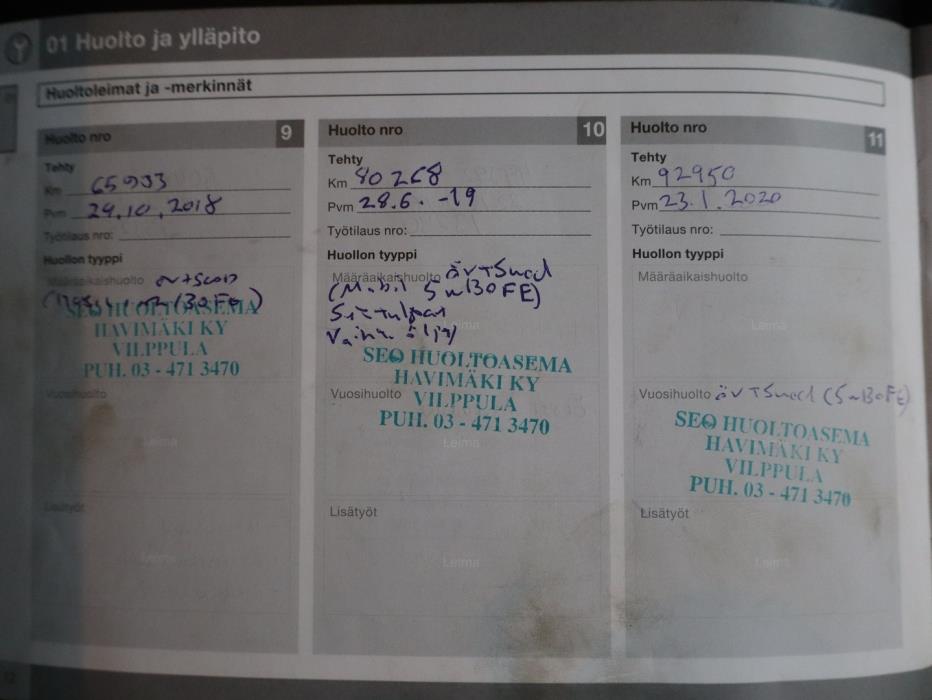 01 Huolto ja ylläpito
Huoltoleimat ja -merkinnät
Huolto nro 9
Tehty
Km 65933
Pvm 29.10.2018
Työtilaus nro:
Huollon tyyppi
Määräaikaishuolto
SEO HUOLTOASEMA
HAVIMÄKI KY
VILPPULA
PUH. 03 - 471 3470
Vuosihuolto
Leima
Lisätyöt
Leima
Huolto nro 10
Tehty
Km 80268
Pvm 28.6. -19
Työtilaus nro:
Huollon tyyppi
Määräaikaishuolto öv+Suod
(Mobil 5w30FE)
öljy
SEO HUOLTOASEMA
HAVIMÄKI KY
Vuosihuolto VILPPULA
PUH. 03 - 471 3470
Leima
Lisätyöt
Leima
Huolto nro 11
Tehty
Km 92950
Pvm 23.1.2020
Työtilaus nro:
Huollon tyyppi
Määräaikaishuolto
Leima
Vuosihuolto öv+Suod (5w30FE)
SEO HUOLTOASEMA
HAVIMÄKI KY
VILPPULA
PUH. 03 - 471 3470
Lisätyöt
Leima